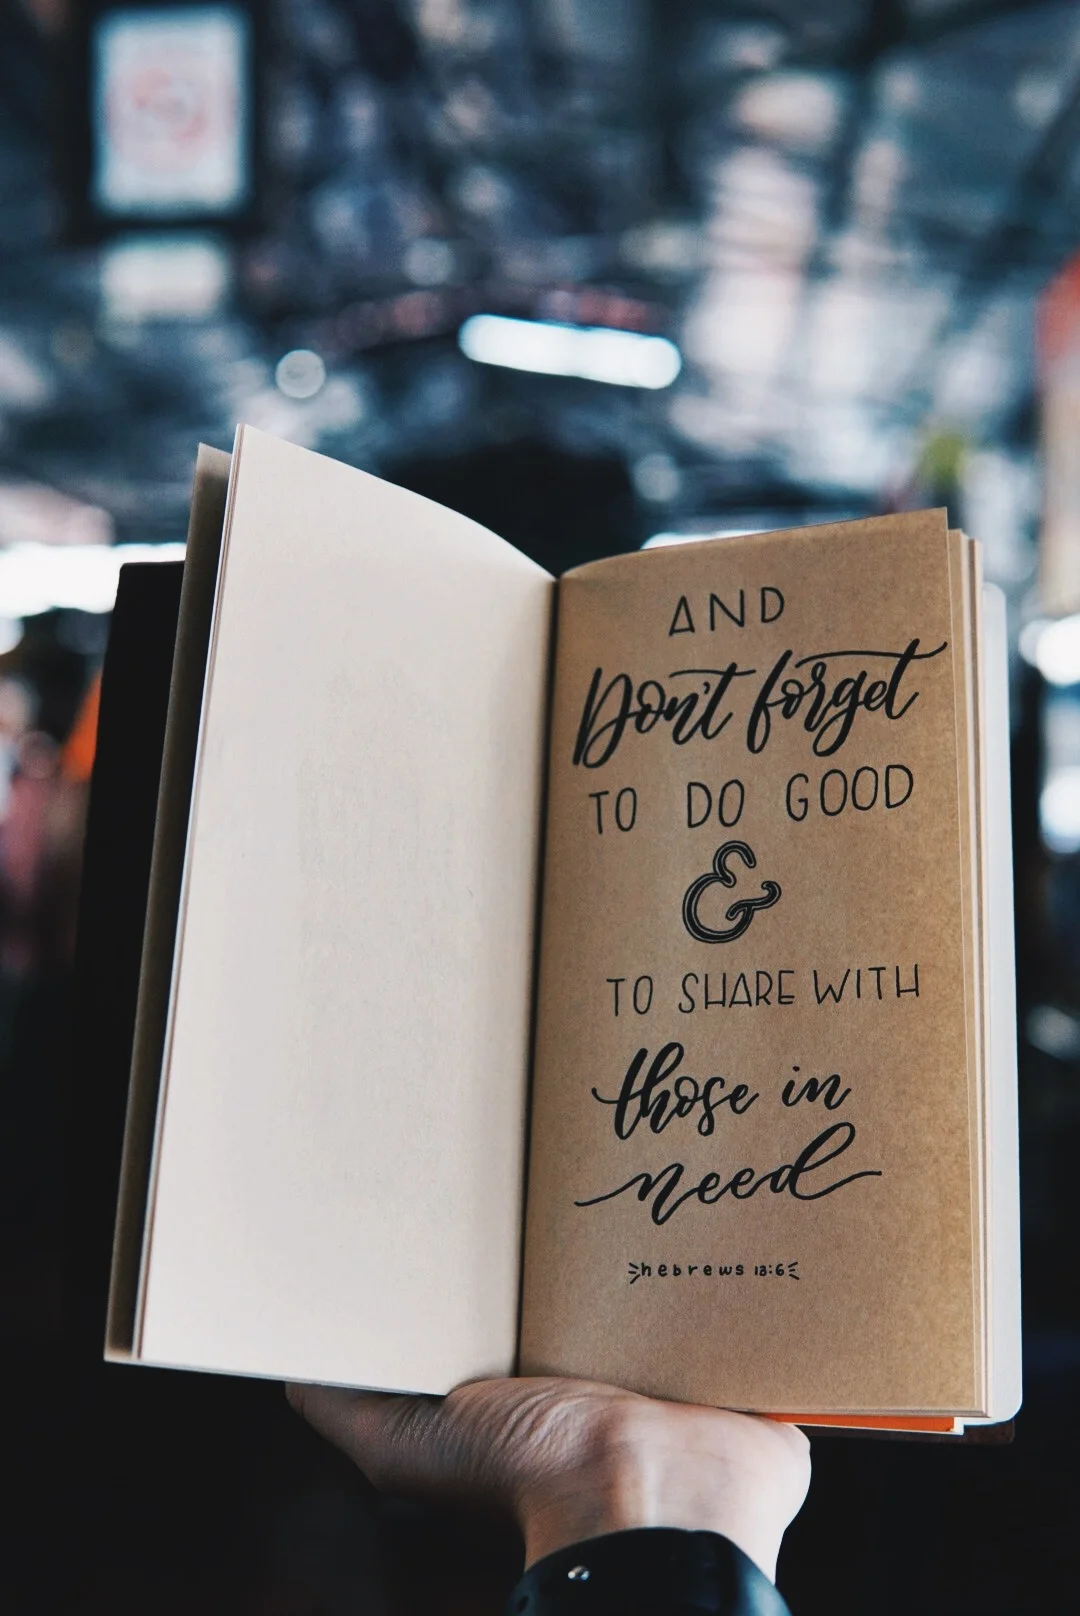 AND
Don't forget
TO DO GOOD
&
TO SHARE WITH
those in
need
hebrews 13:6